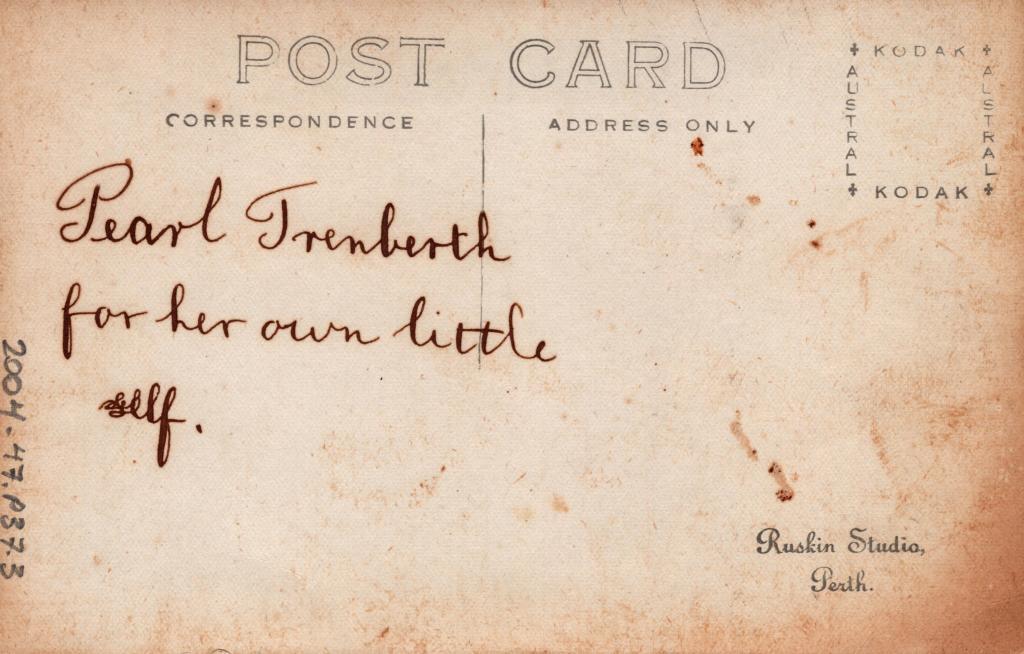 POST CARD
CORRESPONDENCE
ADDRESS ONLY
KODAK
AUSTRAL
AUSTRAL
KODAK
Pearl Trenberth
for her own little
self.
Ruskin Studio,
Perth.
2004.47.P37.3